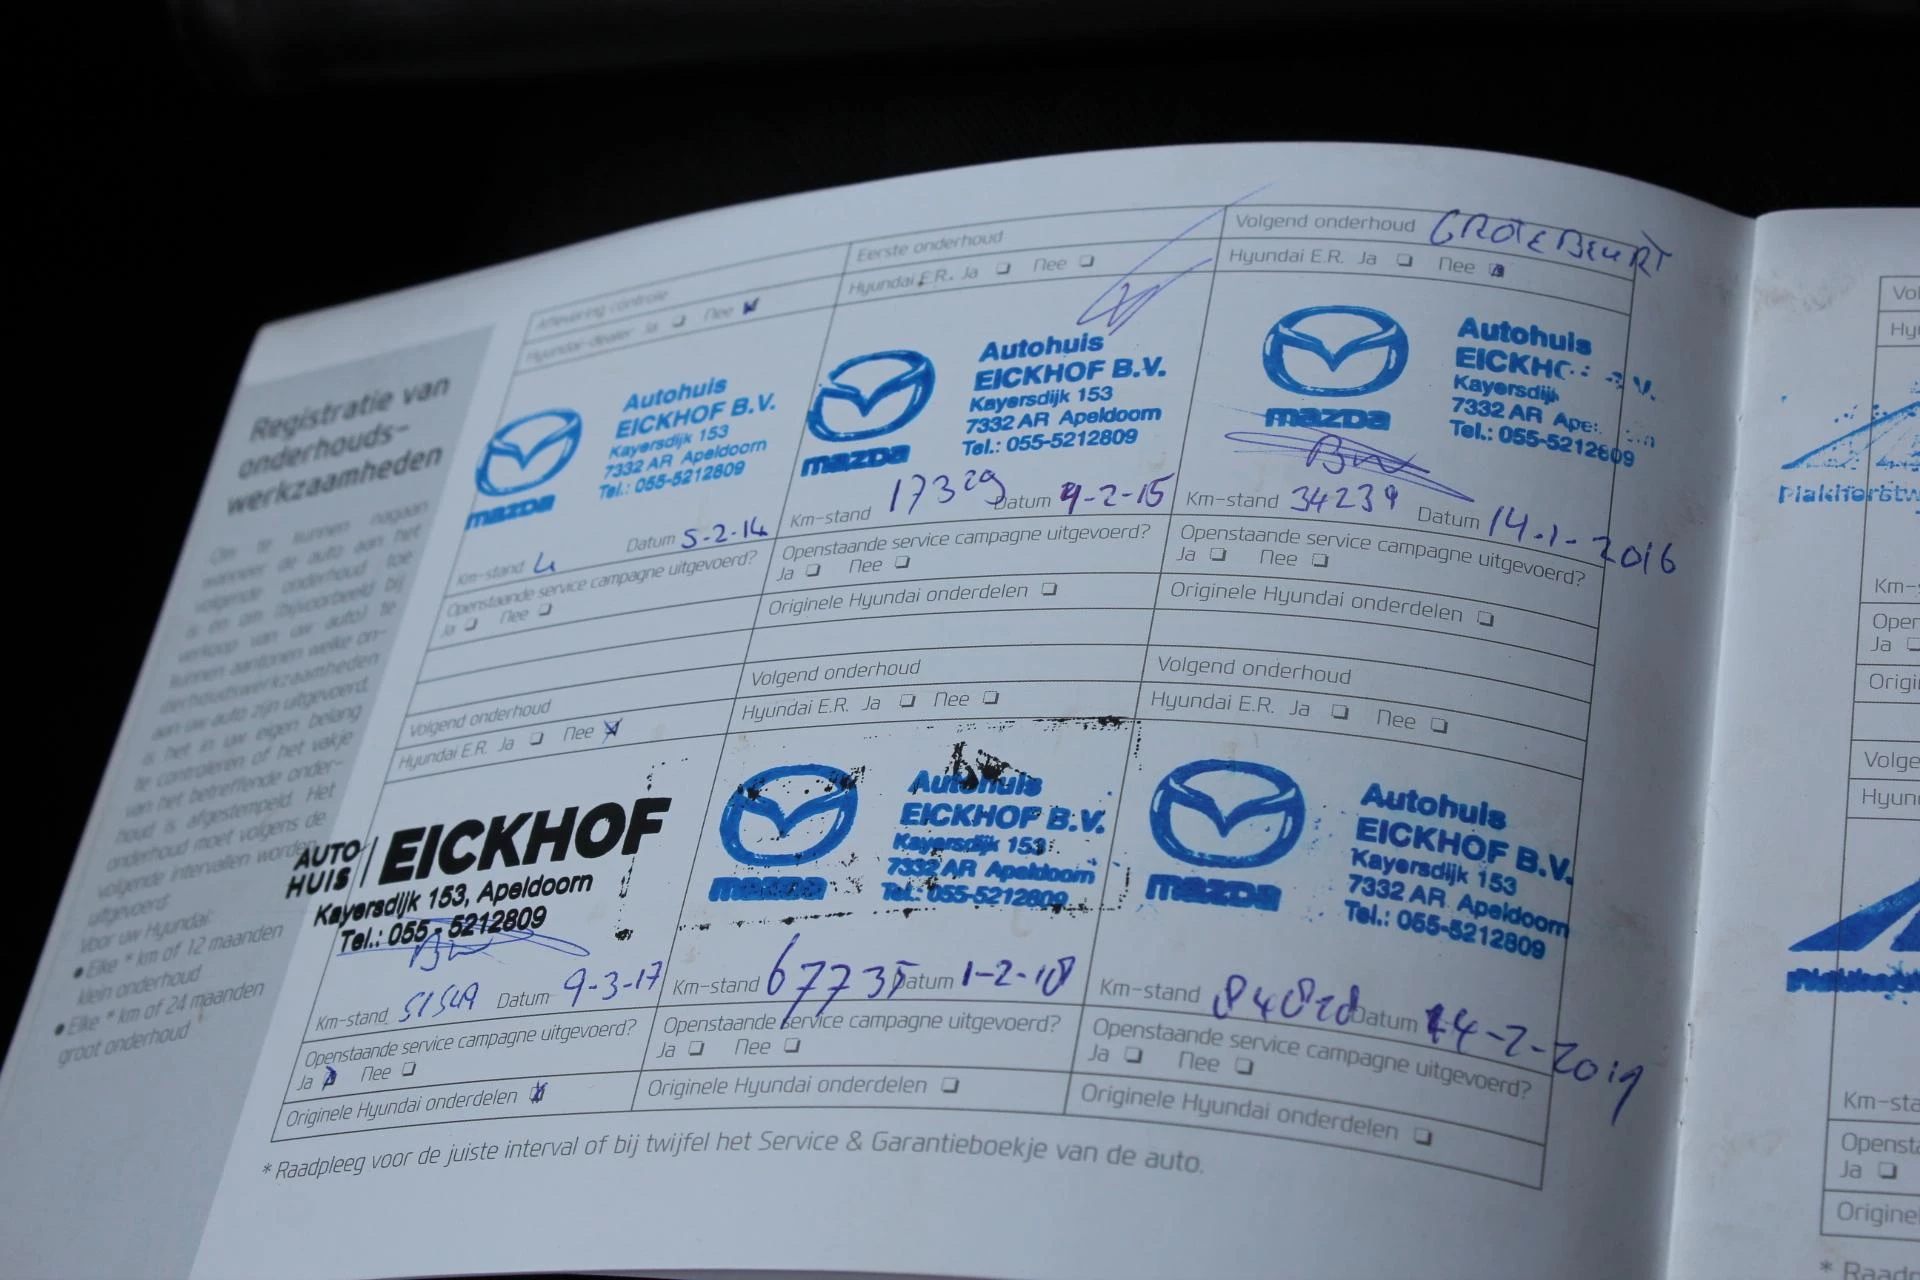 Registratie van
onderhouds-
werkzaamheden
Om te kunnen nagaan
wanneer de auto aan het
volgende onderhoud toe
is en om (bijvoorbeeld bij
verkoop van uw auto) te
kunnen aantonen welke on-
derhoudswerkzaamheden
aan uw auto zijn uitgevoerd,
is het in uw eigen belang
te controleren of het vakje
van het betreffende onder-
houd is afgestempeld. Het
onderhoud moet volgens de
volgende intervallen worden
uitgevoerd:
Voor uw Hyundai:
• Elke * km of 12 maanden
klein onderhoud
• Elke * km of 24 maanden
groot onderhoud
Aflevering controle
Hyundai-dealer Ja Nee
mazda
Autohuis
EICKHOF B.V.
Kayersdijk 153
7332 AR Apeldoorn
Tel.: 055-5212809
Km-stand 4 Datum 5-2-14
Openstaande service campagne uitgevoerd?
Ja Nee
Eerste onderhoud
Hyundai E.R. Ja Nee
mazda
Autohuis
EICKHOF B.V.
Kayersdijk 153
7332 AR Apeldoorn
Tel.: 055-5212809
Km-stand 17329 Datum 9-2-15
Openstaande service campagne uitgevoerd?
Ja Nee
Originele Hyundai onderdelen
Volgend onderhoud GROTE BEURT
Hyundai E.R. Ja Nee
mazda
Autohuis
EICKHO V.
Kayersdijk
7332 AR Ape
Tel.: 055-5212809
Km-stand 34239 Datum 14-1-2016
Openstaande service campagne uitgevoerd?
Ja Nee
Originele Hyundai onderdelen
Volgend onderhoud
Hyundai E.R. Ja Nee
AUTO HUIS EICKHOF
Kayersdijk 153, Apeldoorn
Tel.: 055 - 5212809
Km-stand Datum 9-3-17
Openstaande service campagne uitgevoerd?
Ja Nee
Originele Hyundai onderdelen
Volgend onderhoud
Hyundai E.R. Ja Nee
mazda
Autohuis
EICKHOF B.V.
Kayersdijk 153
7332 AR Apeldoorn
Tel.: 055-5212809
Km-stand 67735 Datum 1-2-18
Openstaande service campagne uitgevoerd?
Ja Nee
Originele Hyundai onderdelen
Volgend onderhoud
Hyundai E.R. Ja Nee
mazda
Autohuis
EICKHOF B.V.
Kayersdijk 153
7332 AR Apeldoorn
Tel.: 055-5212809
Km-stand Datum 14-2-2019
Openstaande service campagne uitgevoerd?
Ja Nee
Originele Hyundai onderdelen
* Raadpleeg voor de juiste interval of bij twijfel het Service & Garantieboekje van de auto.
Vol
Hy
Km-
Open
Ja
Origi
Volge
Hyun
Km-sta
Opensta
Ja
Originele
* Raadp